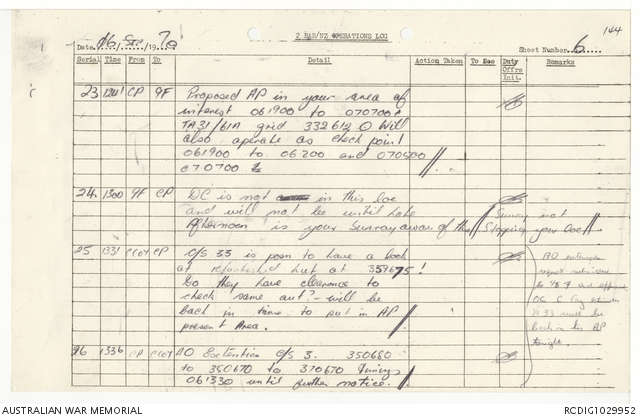 144
2 RAR/NZ OPERATIONS LOG
Date 06/ Sep /19 70 Sheet Number 6
Serial Time From To Detail Action Taken To See Duty Offrs Init. Remarks
23 1241 CP 9F Proposed AP in your area of
interest 061900 to 070700
TA31/61A grid 332612 Will
also operate as check point
061900 to 06 200 and 070500
070700
24. 1300 9F CP DC is not in this loc
and will not be until late
Afternoon is your Sunray aware of this Sunray not
Stopping your loc
25 1331 CP C/S 33 is keen to have a look
at refurbished hut at 357675!
Do they have clearance to
check same out? - will be
back in time to put in AP
present Area.
AO extension
to
33 will be
back in for AP
tonight.
26 1336 AO Extention C/S 3. 350680
to 350670 to 370670 Timings
061330 until further notice.
AUSTRALIAN WAR MEMORIAL RCDIG1029952